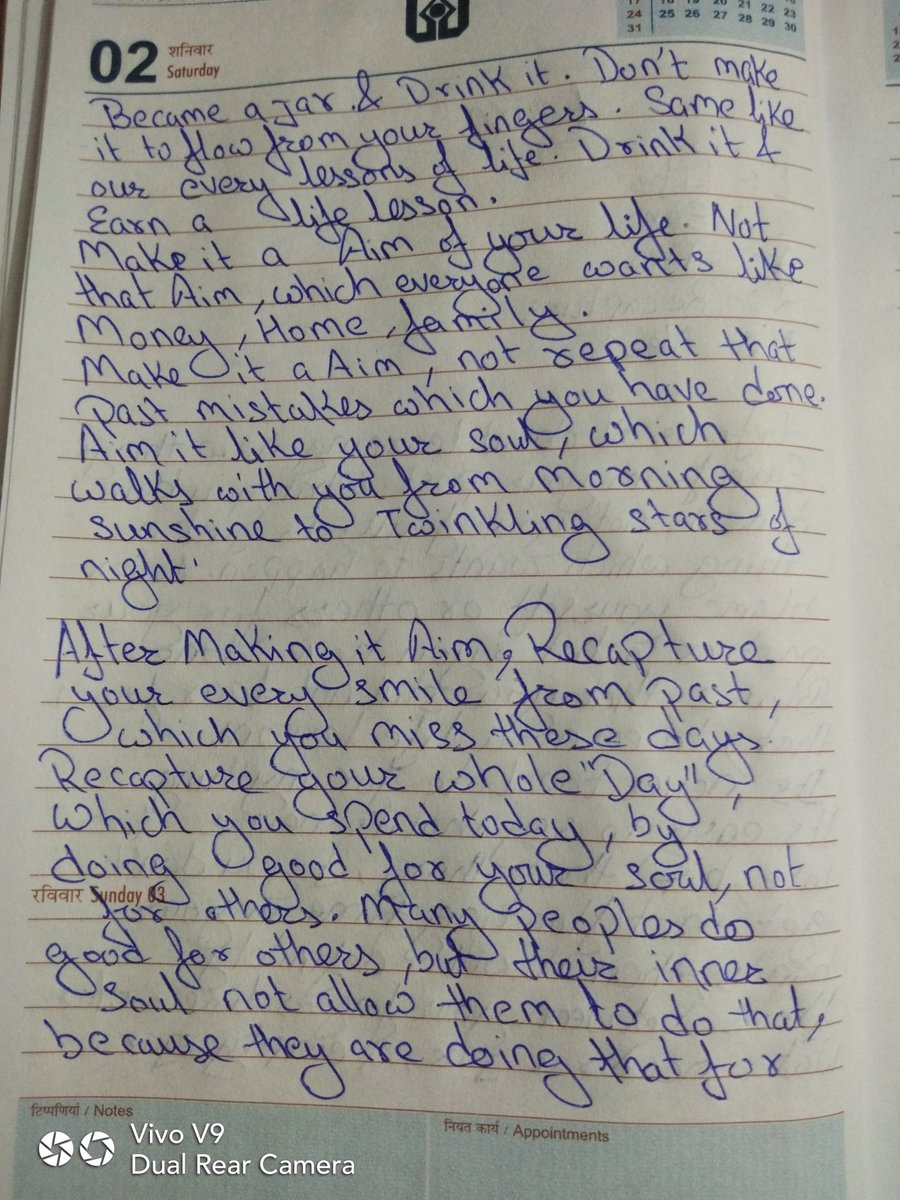 17 18 19 20 21 22 23
24 25 26 27 28 29 30
31
02 शनिवार
Saturday
Became a jar & Drink it. Don't make
it to flow from your fingers. Same like
our every lessons of life. Drink it &
Earn a life lesson.
Make it a Aim of your life. Not
that Aim, which everyone wants like
Money, Home, family.
Make it a Aim, not repeat that
past mistakes which you have done.
Aim it like your soul, which
walks with you from morning
sunshine to Twinkling stars of
night.
After Making it Aim, Recapture
your every smile from past,
which you miss these days.
Recapture your whole "Day",
which you spend today, by
doing good for your soul, not
रविवार Sunday 03
for others. Many peoples do
good for others, but their inner
soul not allow them to do that,
because they are doing that for
टिप्पणियां / Notes
नियत कार्य / Appointments
Vivo V9
Dual Rear Camera